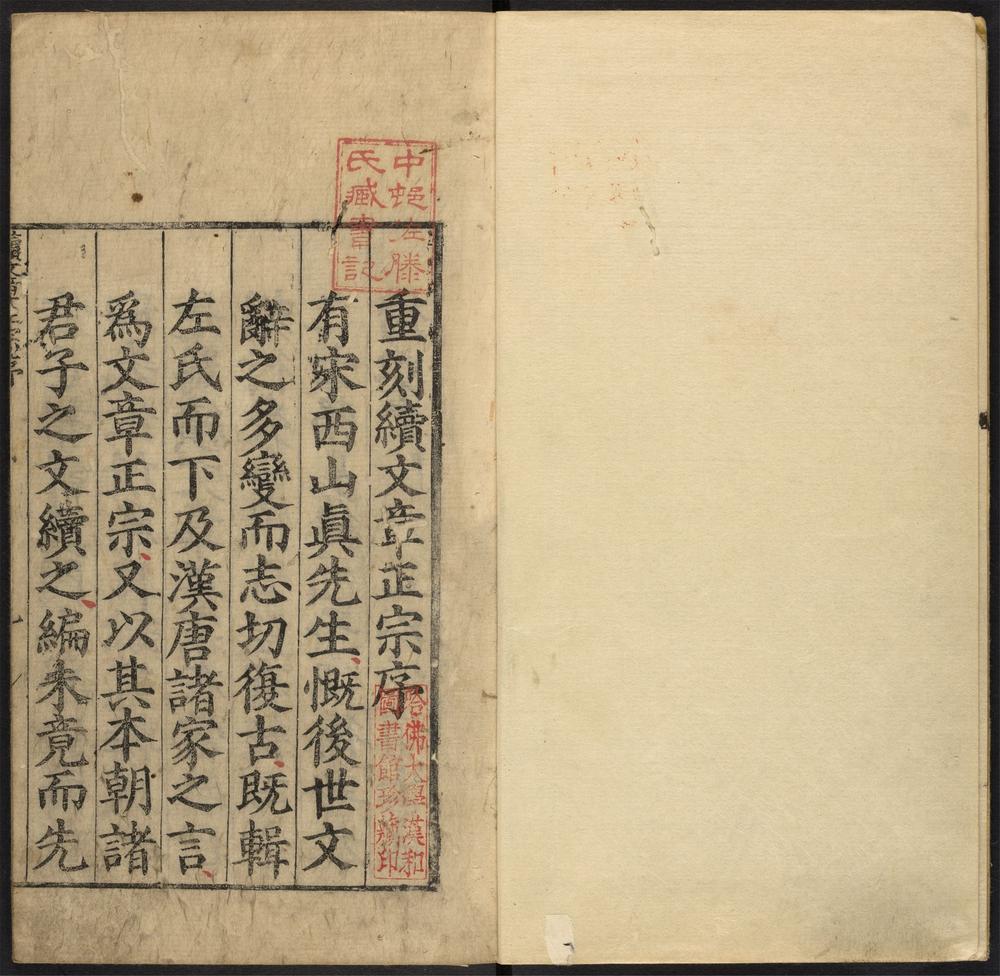 重刻續文章正宗序
有宋西山眞先生慨後世文
辭之多變而志切復古既輯
左氏而下及漢唐諸家之言
爲文章正宗又以其本朝諸
君子之文續之編未竟而先
續文章正宗序
中𨛦左滕
氏臧書記
哈佛大學漢和
圖書館珍藏印